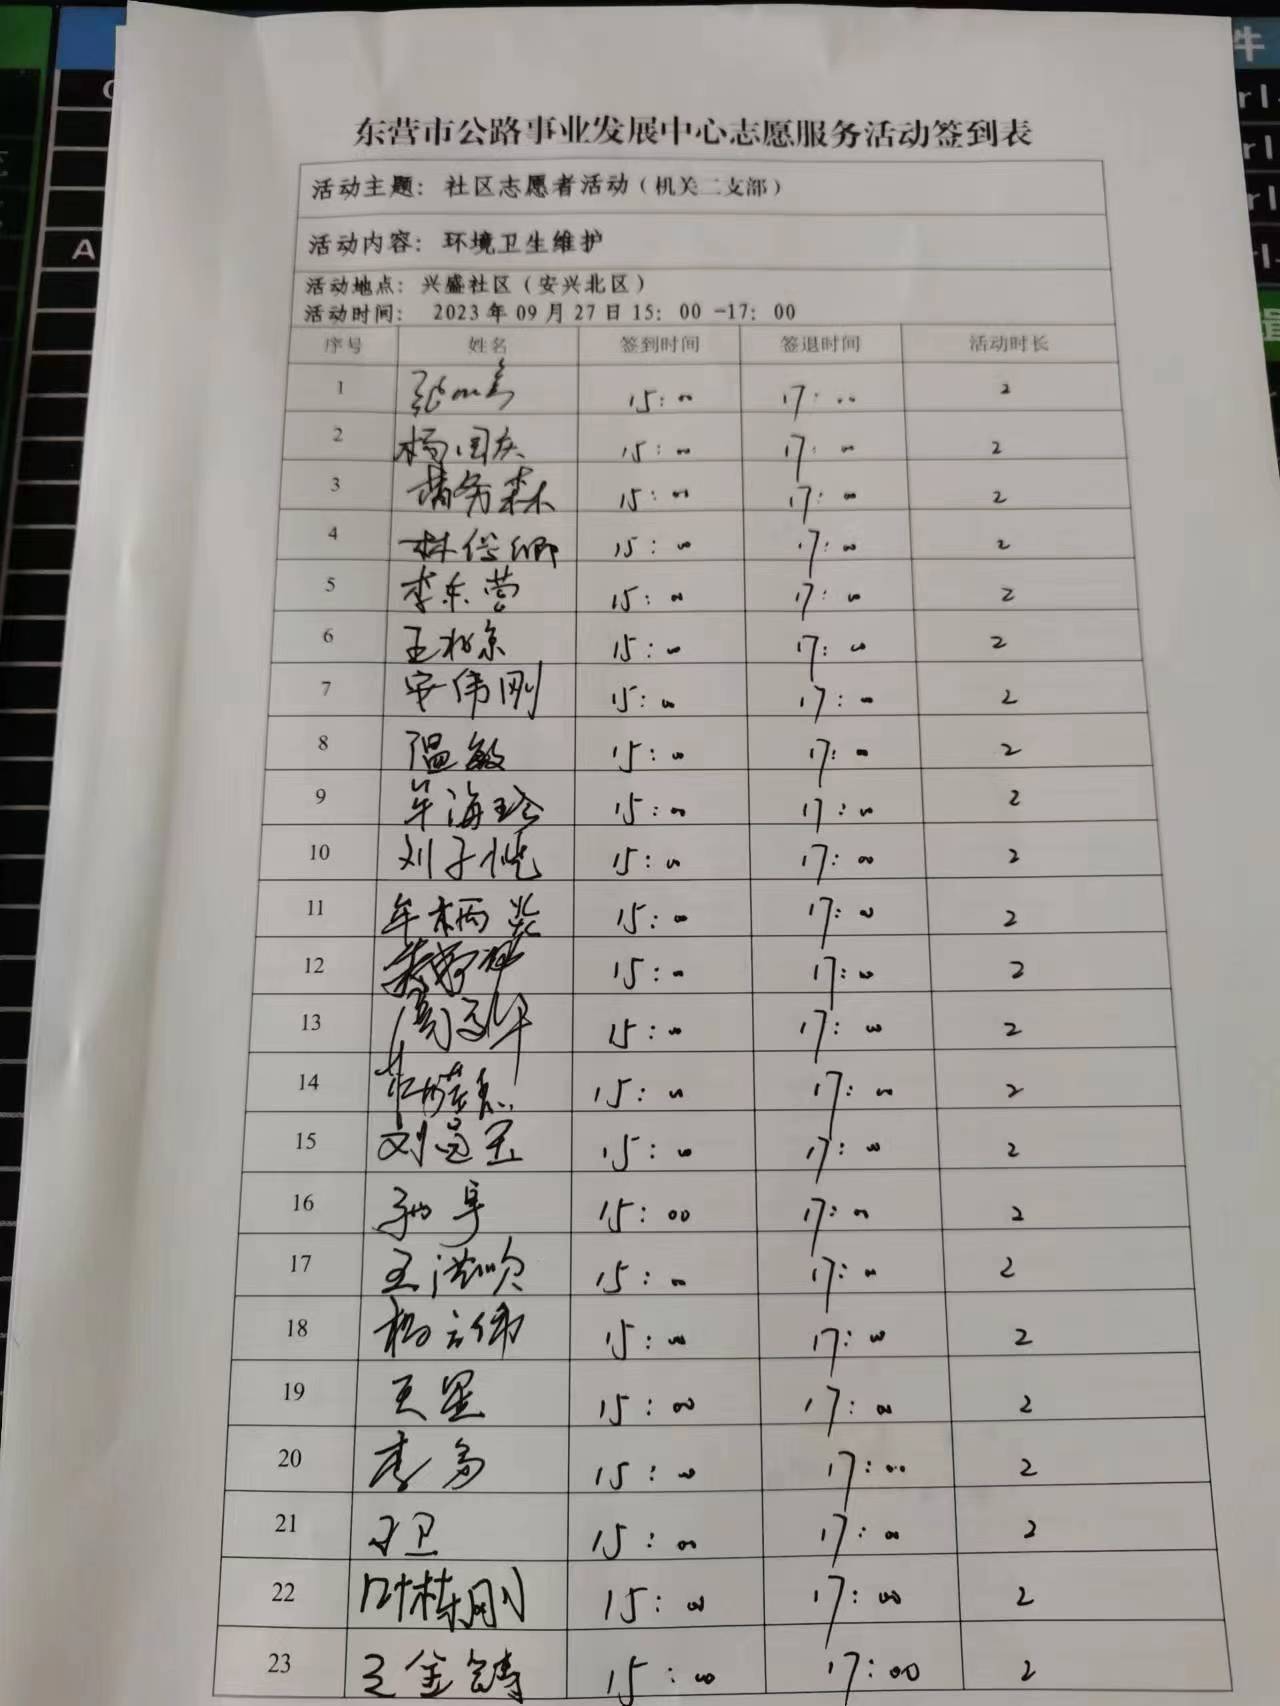 东营市公路事业发展中心志愿服务活动签到表
活动主题：社区志愿者活动（机关二支部）
活动内容：环境卫生维护
活动地点：兴盛社区（安兴北区）
活动时间： 2023年09月27日15：00-17：00
序号 姓名 签到时间 签退时间 活动时长
1 15:00 17:00 2
2 杨国庆 15:00 17:00 2
3 15:00 17:00 2
4 15:00 17:00 2
5 李东营 15:00 17:00 2
6 王 15:00 17:00 2
7 安伟刚 15:00 17:00 2
8 温敏 15:00 17:00 2
9 牟海珍 15:00 17:00 2
10 刘子恺 15:00 17:00 2
11 15:00 17:00 2
12 15:00 17:00 2
13 15:00 17:00 2
14 15:00 17:00 2
15 刘昆玉 15:00 17:00 2
16 15:00 17:00 2
17 王 15:00 17:00 2
18 杨云伟 15:00 17:00 2
19 王星 15:00 17:00 2
20 李 15:00 17:00 2
21 卫 15:00 17:00 2
22 叶栋刚 15:00 17:00 2
23 王金铸 15:00 17:00 2